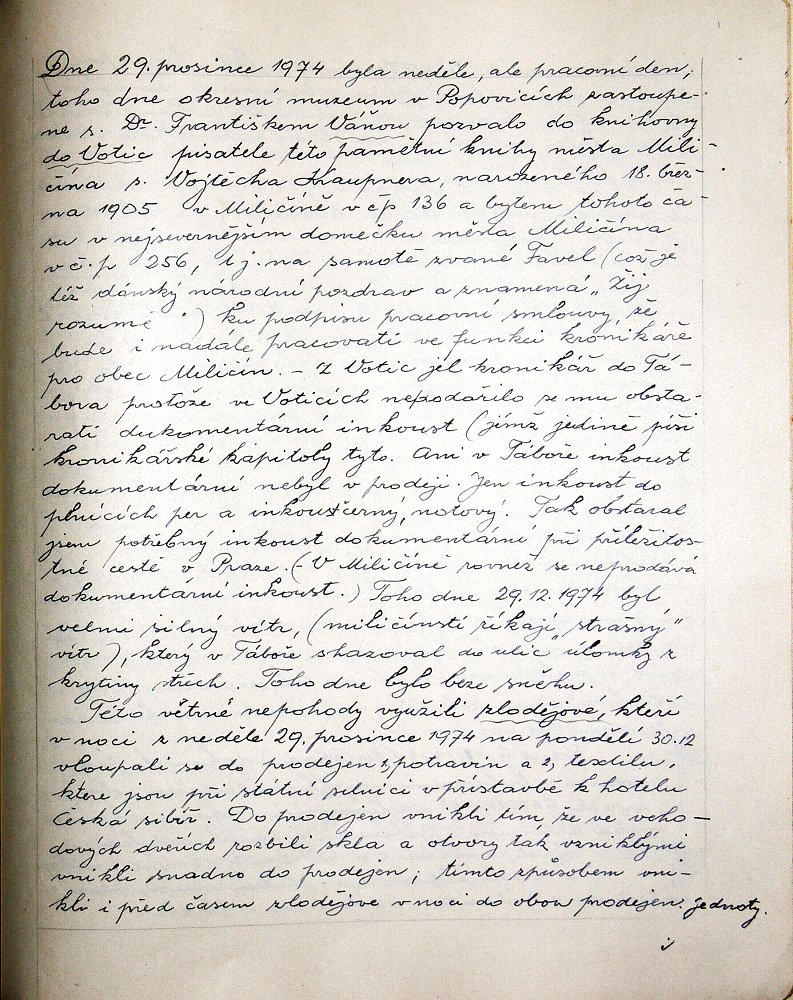 Dne 29. prosince 1974 byla neděle, ale pracovní den,
toho dne okresní muzeum v Popovicích zastoupe-
né s. Dr. Františkem Váňou pozvalo do knihovny
do Votic pisatele této pamětní knihy města Mili-
čína s. Vojtěcha Kaupnera, narozeného 18. břez-
na 1905 v Miličíně v čp 136 a bytem tohoto ča-
su v nejsevernějším domečku města Miličína
v č.p 256, tj. na samotě zvané Favel (což je
též dánský národní pozdrav a znamená „Žij
rozumě") ku podpisu pracovní smlouvy, že
bude i nadále pracovati ve funkci kronikáře
pro obec Miličín. – Z Votic jel kronikář do Tá-
bora protože ve Voticích nepodařilo se mu obsta-
rati dukomentární inkoust (jímž jedině píši
kronikářské kapitoly tyto. Ani v Táboře inkoust
dokumentární nebyl v prodeji. Jen inkoust do
plnících per a inkoust černý, notový. Tak obstaral
jsem potřebný inkoust dokumentární při příležitos-
tné cestě v Praze. (- V Miličíně rovněž se neprodává
dokumentární inkoust.) Toho dne 29.12.1974 byl
velmi silný vítr, (miličínstí říkají „strašný"
vítr), který v Táboře shazoval do ulic úlomky z
krytiny střech. Toho dne bylo beze sněhu.
Této větrné nepohody využili zlodějové, kteří
v noci z neděle 29. prosince 1974 na pondělí 30.12
vloupali se do prodejen 1, potravin a 2, textilu,
které jsou při státní silnici v přístavbě k hotelu
Česká sibiř. Do prodejen vnikli tím, že ve vcho-
dových dveřích rozbili skla a otvory tak vzniklými
vnikli snadno do prodejen; tímto způsobem vni-
kli i před časem zlodějové v noci do obou prodejen jednoty.